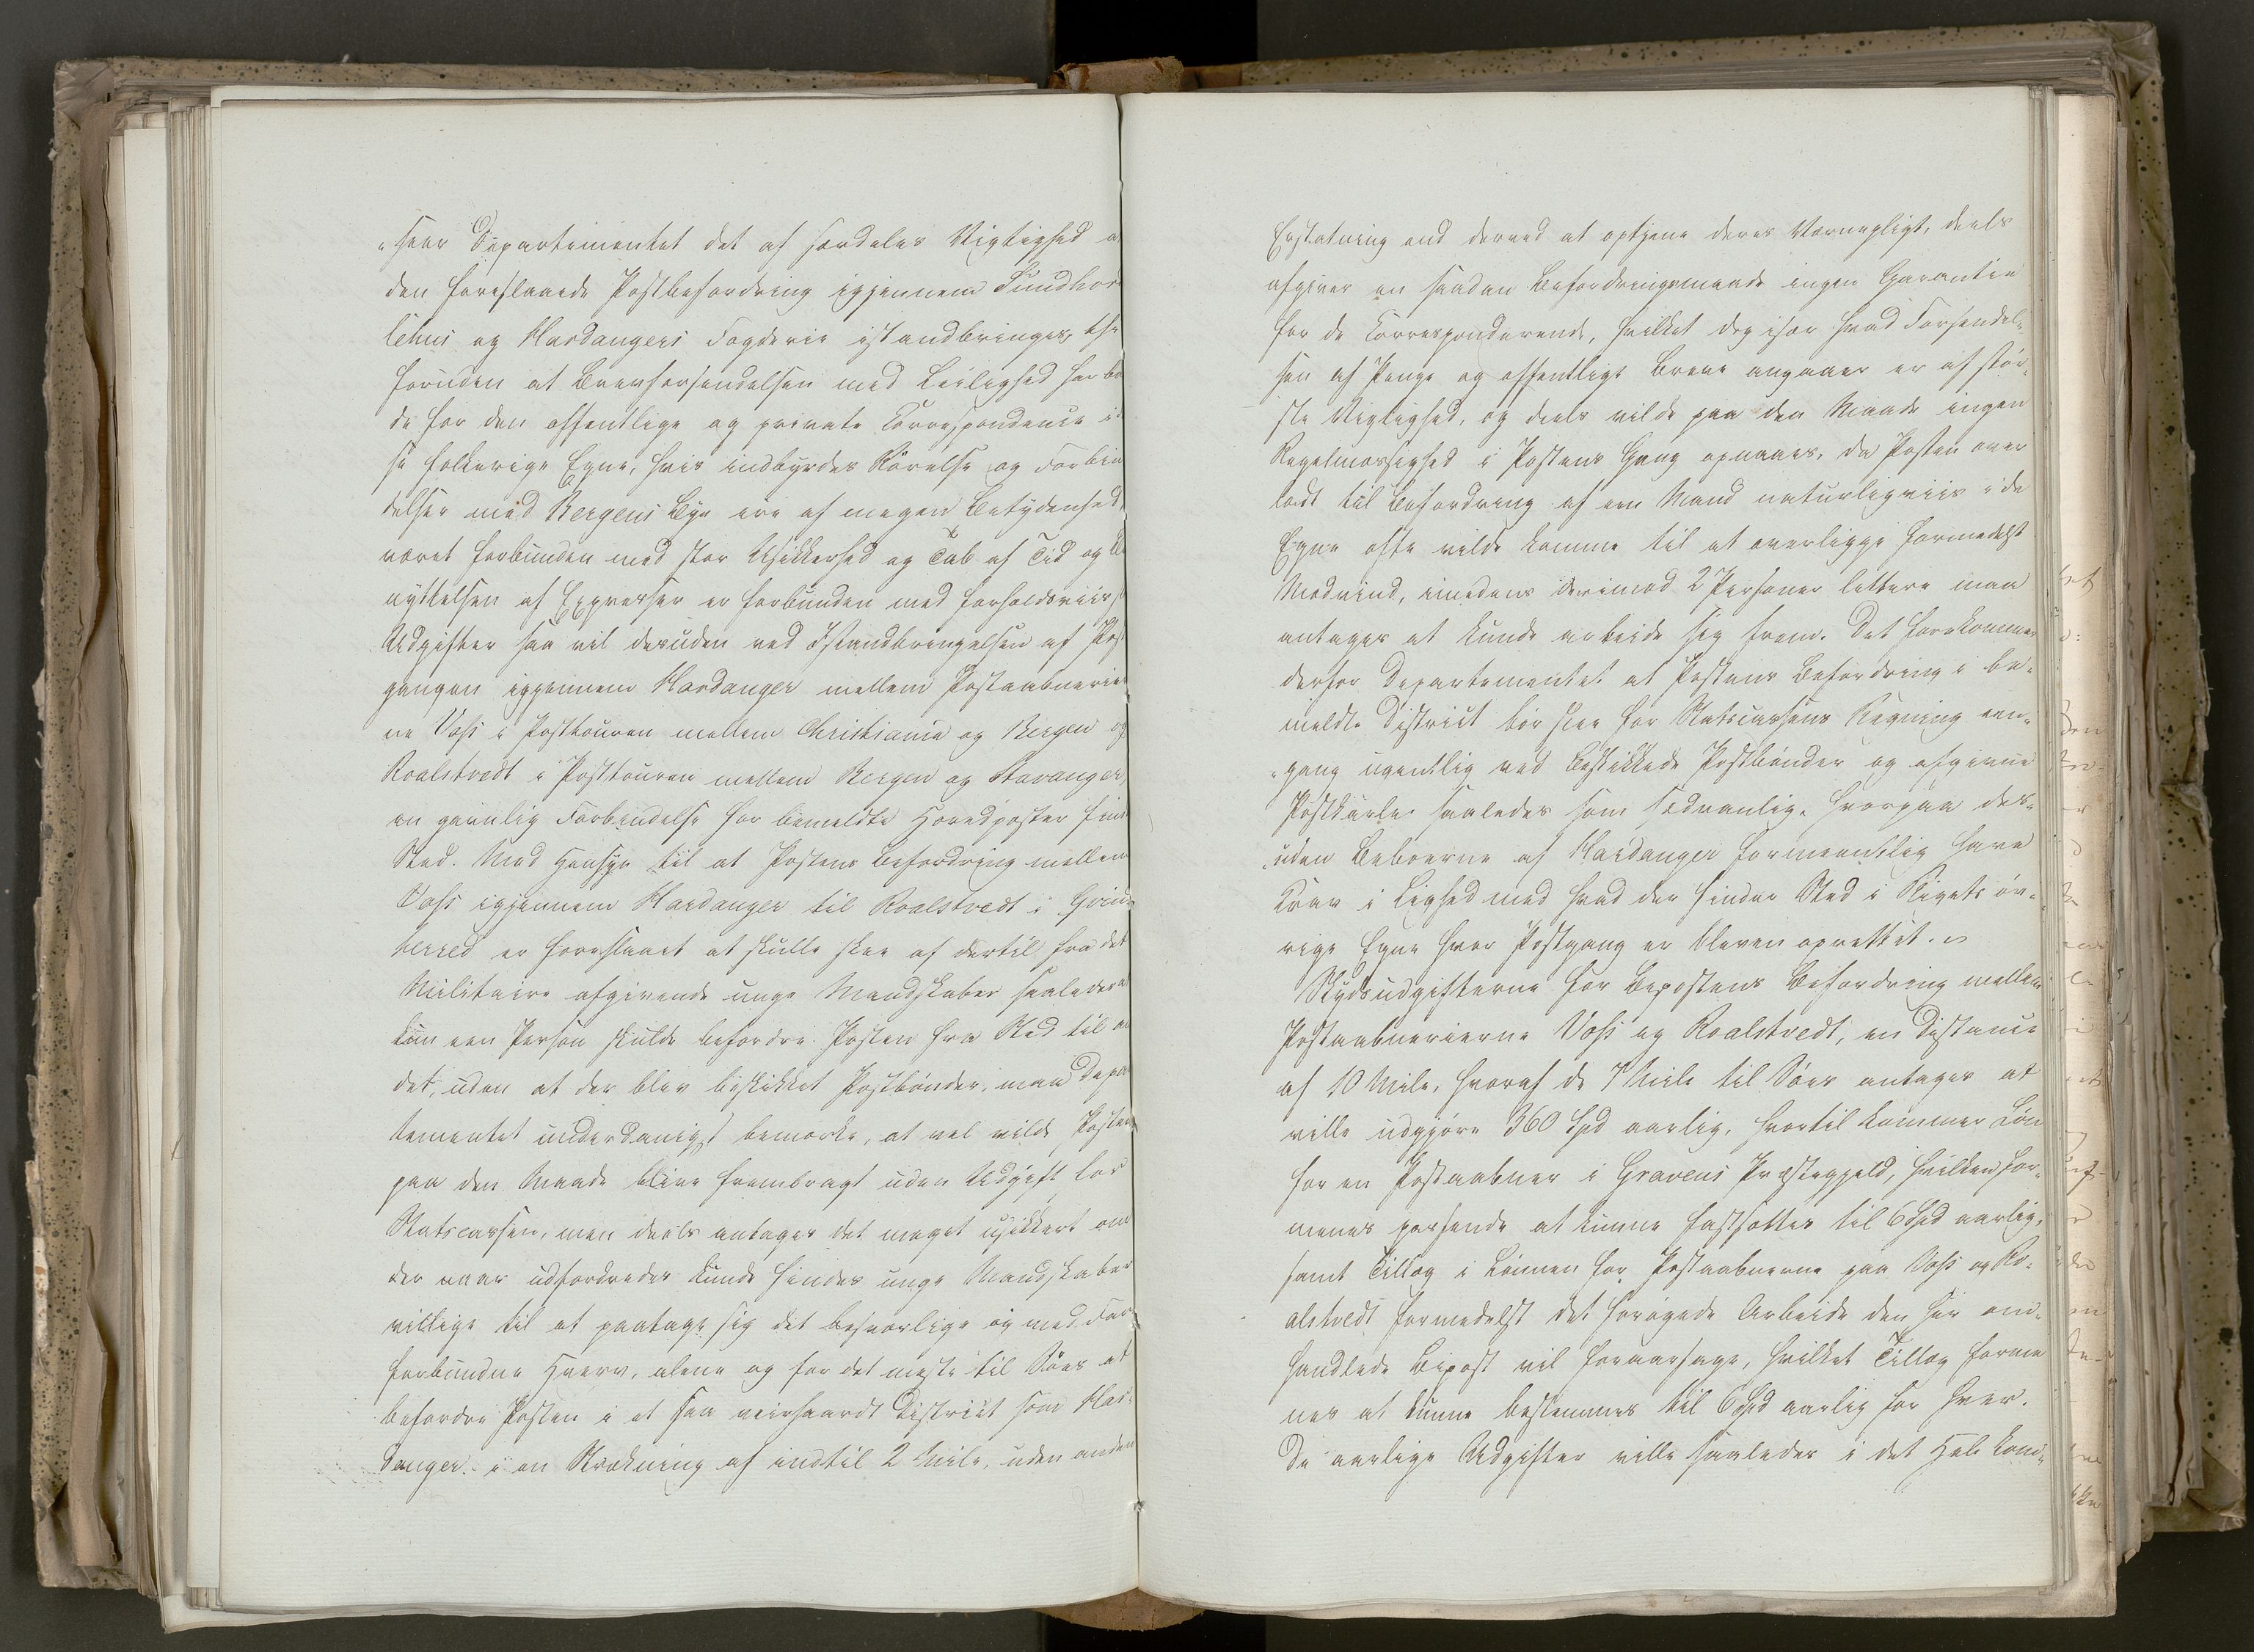 „seer Departementet det af særdeles Vigtighed a
den foreslaaede Postbefordring igjennem Sundhor
lehns og Hardangers Fogderie istandbringes, thi
foruden at Brevforsendelsen med Leilighed har ba
de for den offentlige og private Correspondence i d
se folkerige Egne, hvis indbyrdes Rörelse og Forbin
delser med Bergens Bye ere af megen Betydenhed,
været forbunden med stor Usikkerhed og Tab af Tid og be
nyttelsen af Expresser er forbunden med forholdsviis s
Udgifter saa vil desuden ved Istandbringelsen af Post
gangen igjennem Hardanger mellem Postaabnerier
ne Voss i Posttouren mellem Christiania og Bergen og
Roalstvedt i Posttouren mellem Bergen og Stavanger
en gavnlig Forbindelse for bemeldte Hovedposter finde
Sted. Med Hensyn til at Postens Befordring mellem
Voss igjennem Hardanger til Roalstvedt i Grind-
herred er foreslaaet at skulle skee af dertil fra det
Militaire afgivende unge Mandskaber saaledes a
kun een Person skulde befordre Posten fra Sted til an
det, uden at der blev beskikket Postbönder, maa Depar
tementet underdanigst bemærke, at vel vilde Posten
paa den Maade blive frembragt uden Udgift for
Statscassen, men deels antages det meget usikkert om
der naar udfordredes kunde findes unge Mandskaber
villige til at paatage sig det besværlige og med Fare
forbundne Hverv, alene og for det meste til Söes at
befordre Posten i et saa veirhaardt District som Har-
danger i en Strækning af indtil 2 Mile, uden anden
Erstatning end derved at optjene deres Værnepligt, deels
afgiver en saadan Befordringsmaade ingen Garantie
for de Correspenderende, hvilket dog især hvad Forsendel-
sen af Penge og offentlige Breve angaaer er af stör-
ste Vigtighed, og deels vilde paa den Maade ingen
Regelmæssighed i Postens Gang opnaaes, da Posten over
ladt til Befordring af een Mand naturligviis i de
Egne ofte vilde komme til at overligge formedelst
Modvind, imedens derimod 2 Personer lettere maa
antages at kunde arbeide sig frem. Det forekommer
derfor Departementet at Postens Befordring i be-
meldte District bör skee for Statscassens Regning een-
gang ugentlig ved beskikkede Postbönder og afgivne
Postkarle saaledes som sædvanlig, hvorpaa des-
uden Beboerne af Hardanger formeentlig have
Krav i Lighed med hvad der finder Sted i Rigets öv-
rige Egne hvor Postgang er bleven oprettet."
Skydsudgifterne for Bipostens Befordring mellem
Postaabnerierne Voss og Roalstvedt, en Distance
af 10 Mile, hvoraf de 7 Mile til Söes antages at
ville udgjöre 360 Spd aarlig, hvortil kommer Lön
for en Postaabner i Gravens Præstegjeld, hvilken for-
menes passende at kunne fastsættes til 6 Spd aarlig,
samt Tillæg i Lönnen for Postaabnerne paa Voss og Ro-
alstvedt formedelst det forögede Arbeide den her om-
handlede Bipost vil foraarsage, hvilket Tillæg forme
nes at kunne bestemmes til 6 Spd aarlig for hver.
De aarlige Udgifter ville saaledes i det Hele kom-